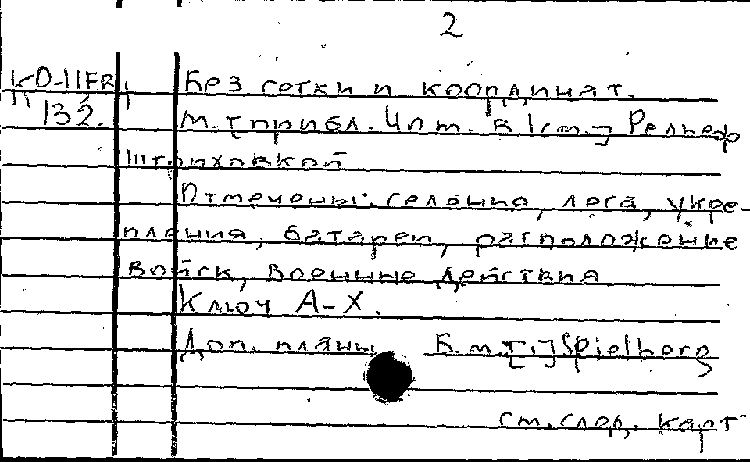 2
КО-11FR Без сетки и координат.
132. М. [прибл. 4 пт. в 1 см.] Рельеф
штриховкой
Отмечены: селения, леса, укре-
пления, батареи, расположение
войск, военные действия
Ключ А-Х.
Доп. планы Б.м. [:] Spielberg
см. след. карт